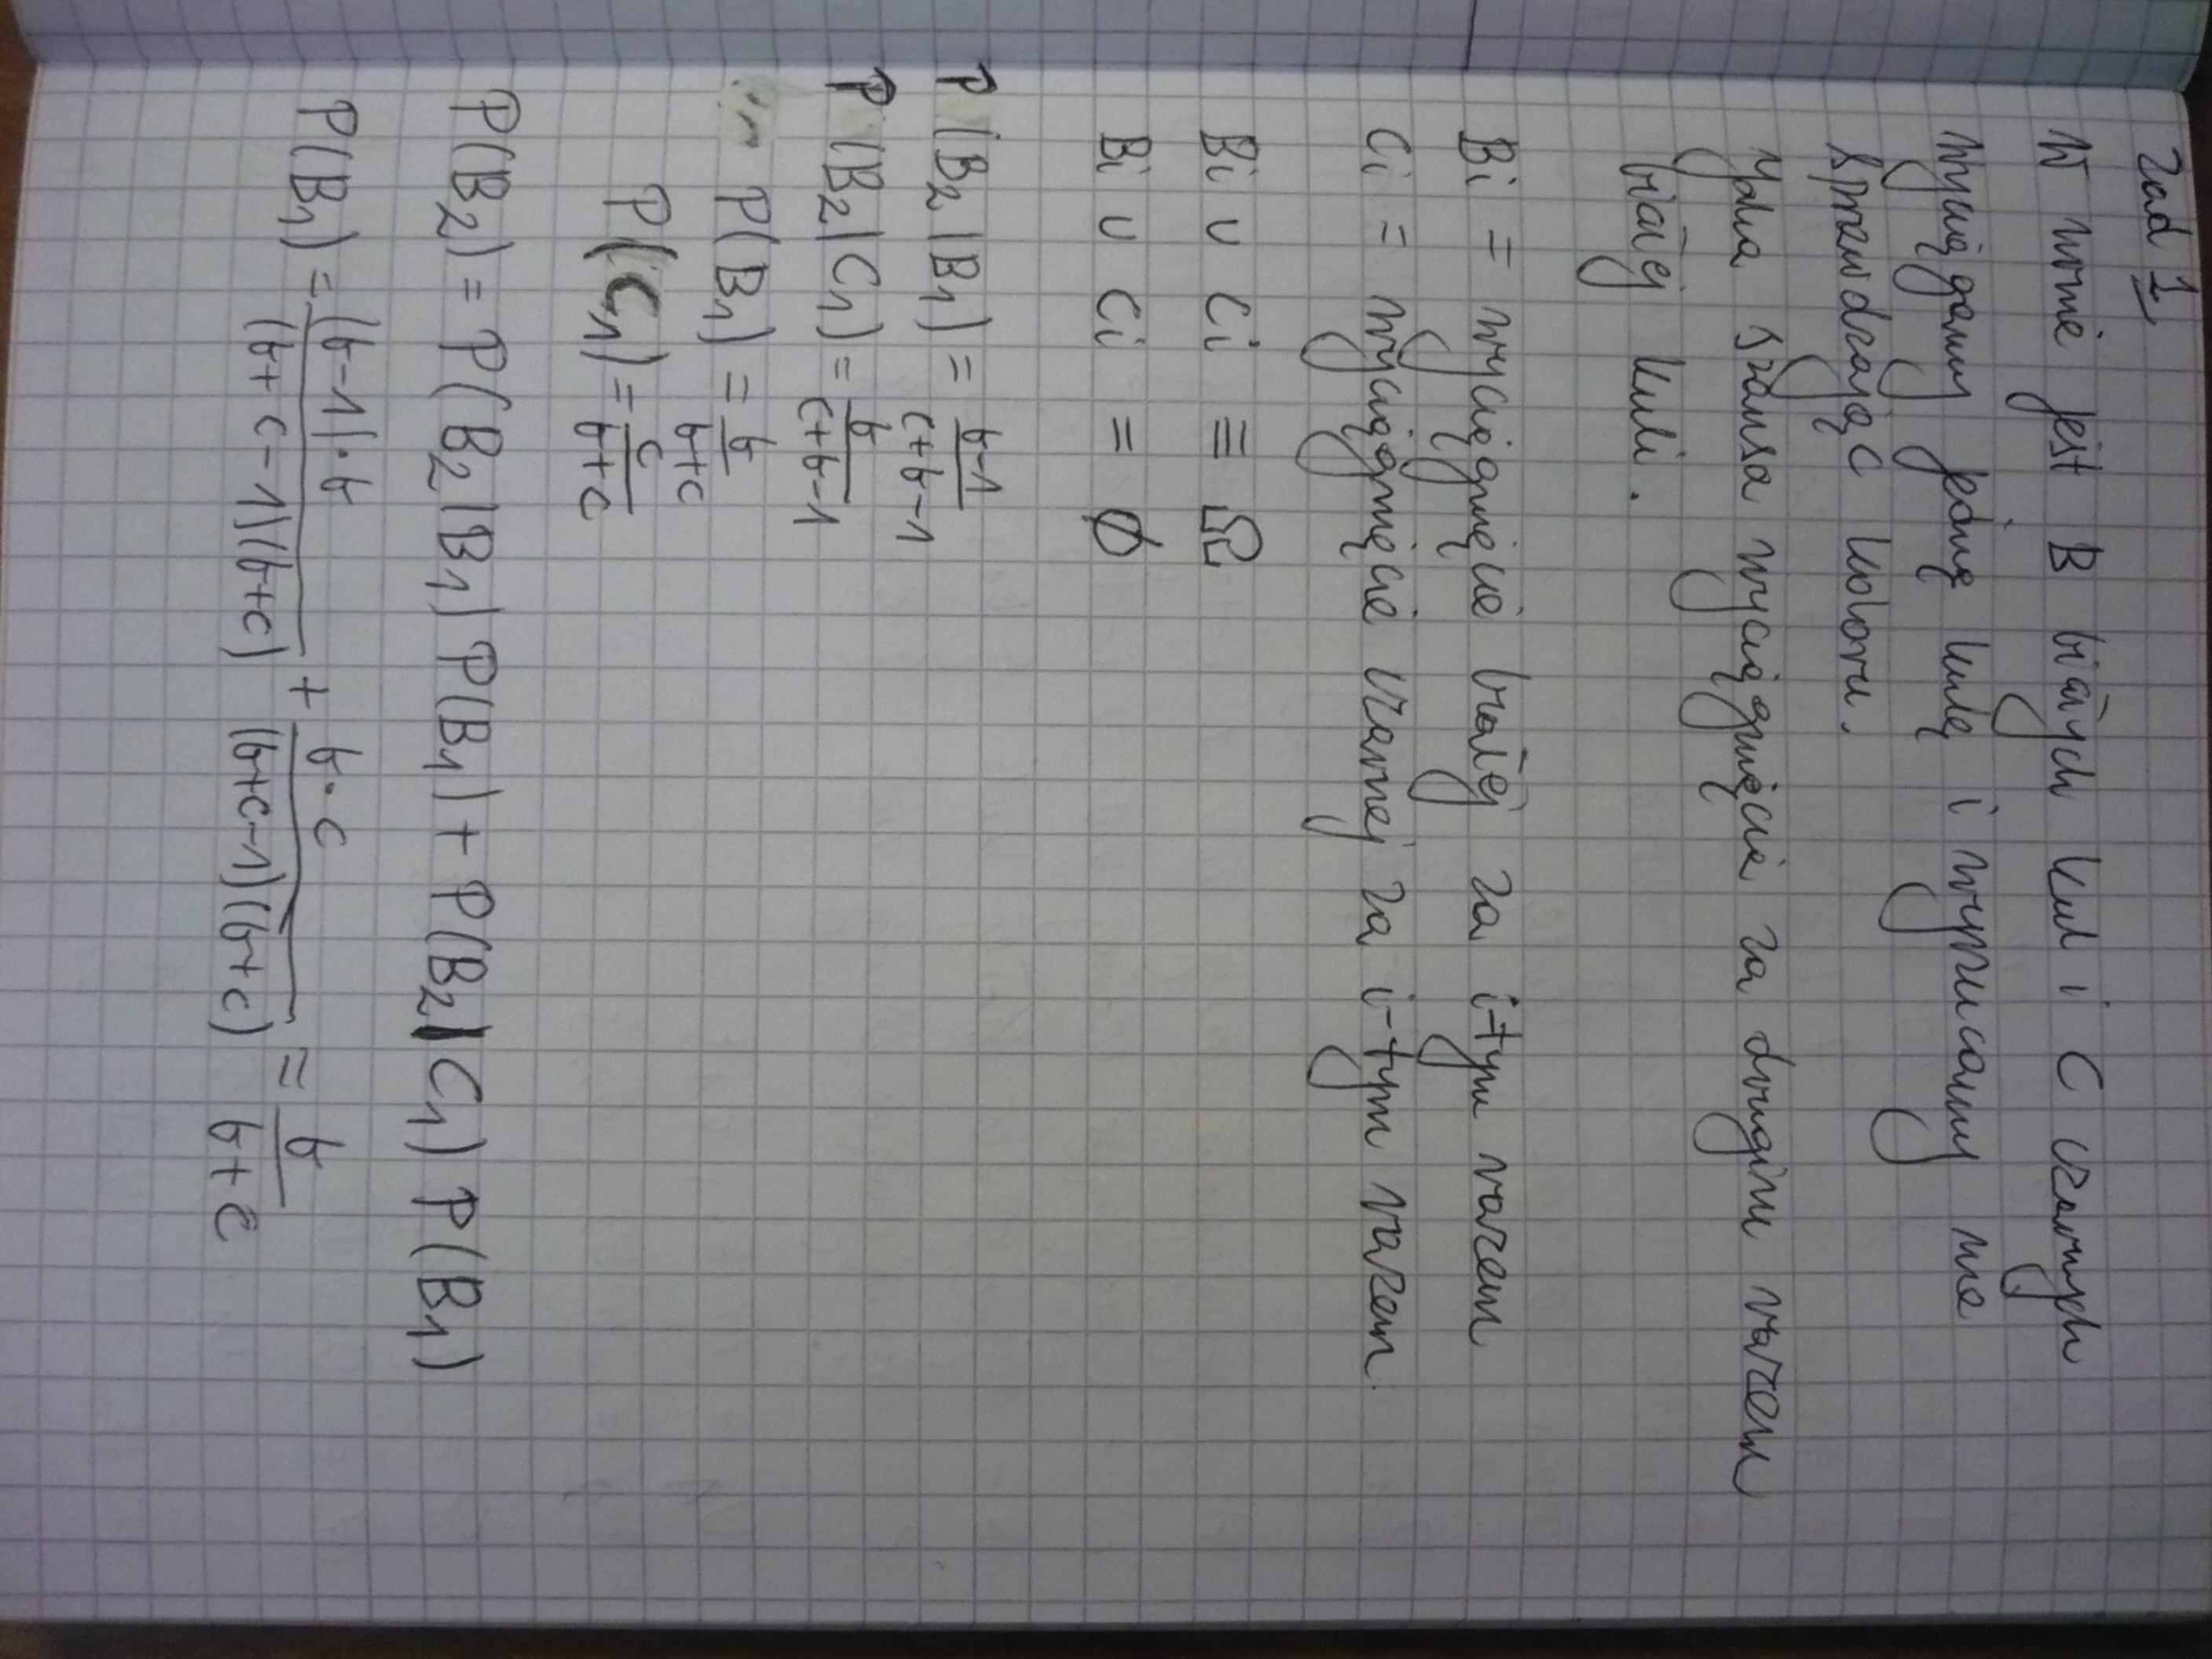 Zad 1
W urnie jest B białych kul i C czarnych
wyciągamy jedną kulę i wyrzucamy nie
sprawdzając koloru.
Jaka szansa wyciągnięcie za drugim razem
białej kuli.
Bi = wyciągnięcie białej za i-tym razem
Ci = wyciągnięcie czarnej za i-tym razem.
Bi ∪ Ci ≡ Ω
Bi ∪ Ci = ∅
P(B₂|B₁) = (b-1)/(c+b-1)
P(B₂|C₁) = b/(c+b-1)
P(B₁) = b/(b+c)
P(C₁) = c/(b+c)
P(B₂) = P(B₂|B₁) P(B₁) + P(B₂|C₁) P(B₁)
P(B₁) = (b-1)·b/(b+c-1)(b+c) + b·c/(b+c-1)(b+c) = b/b+c